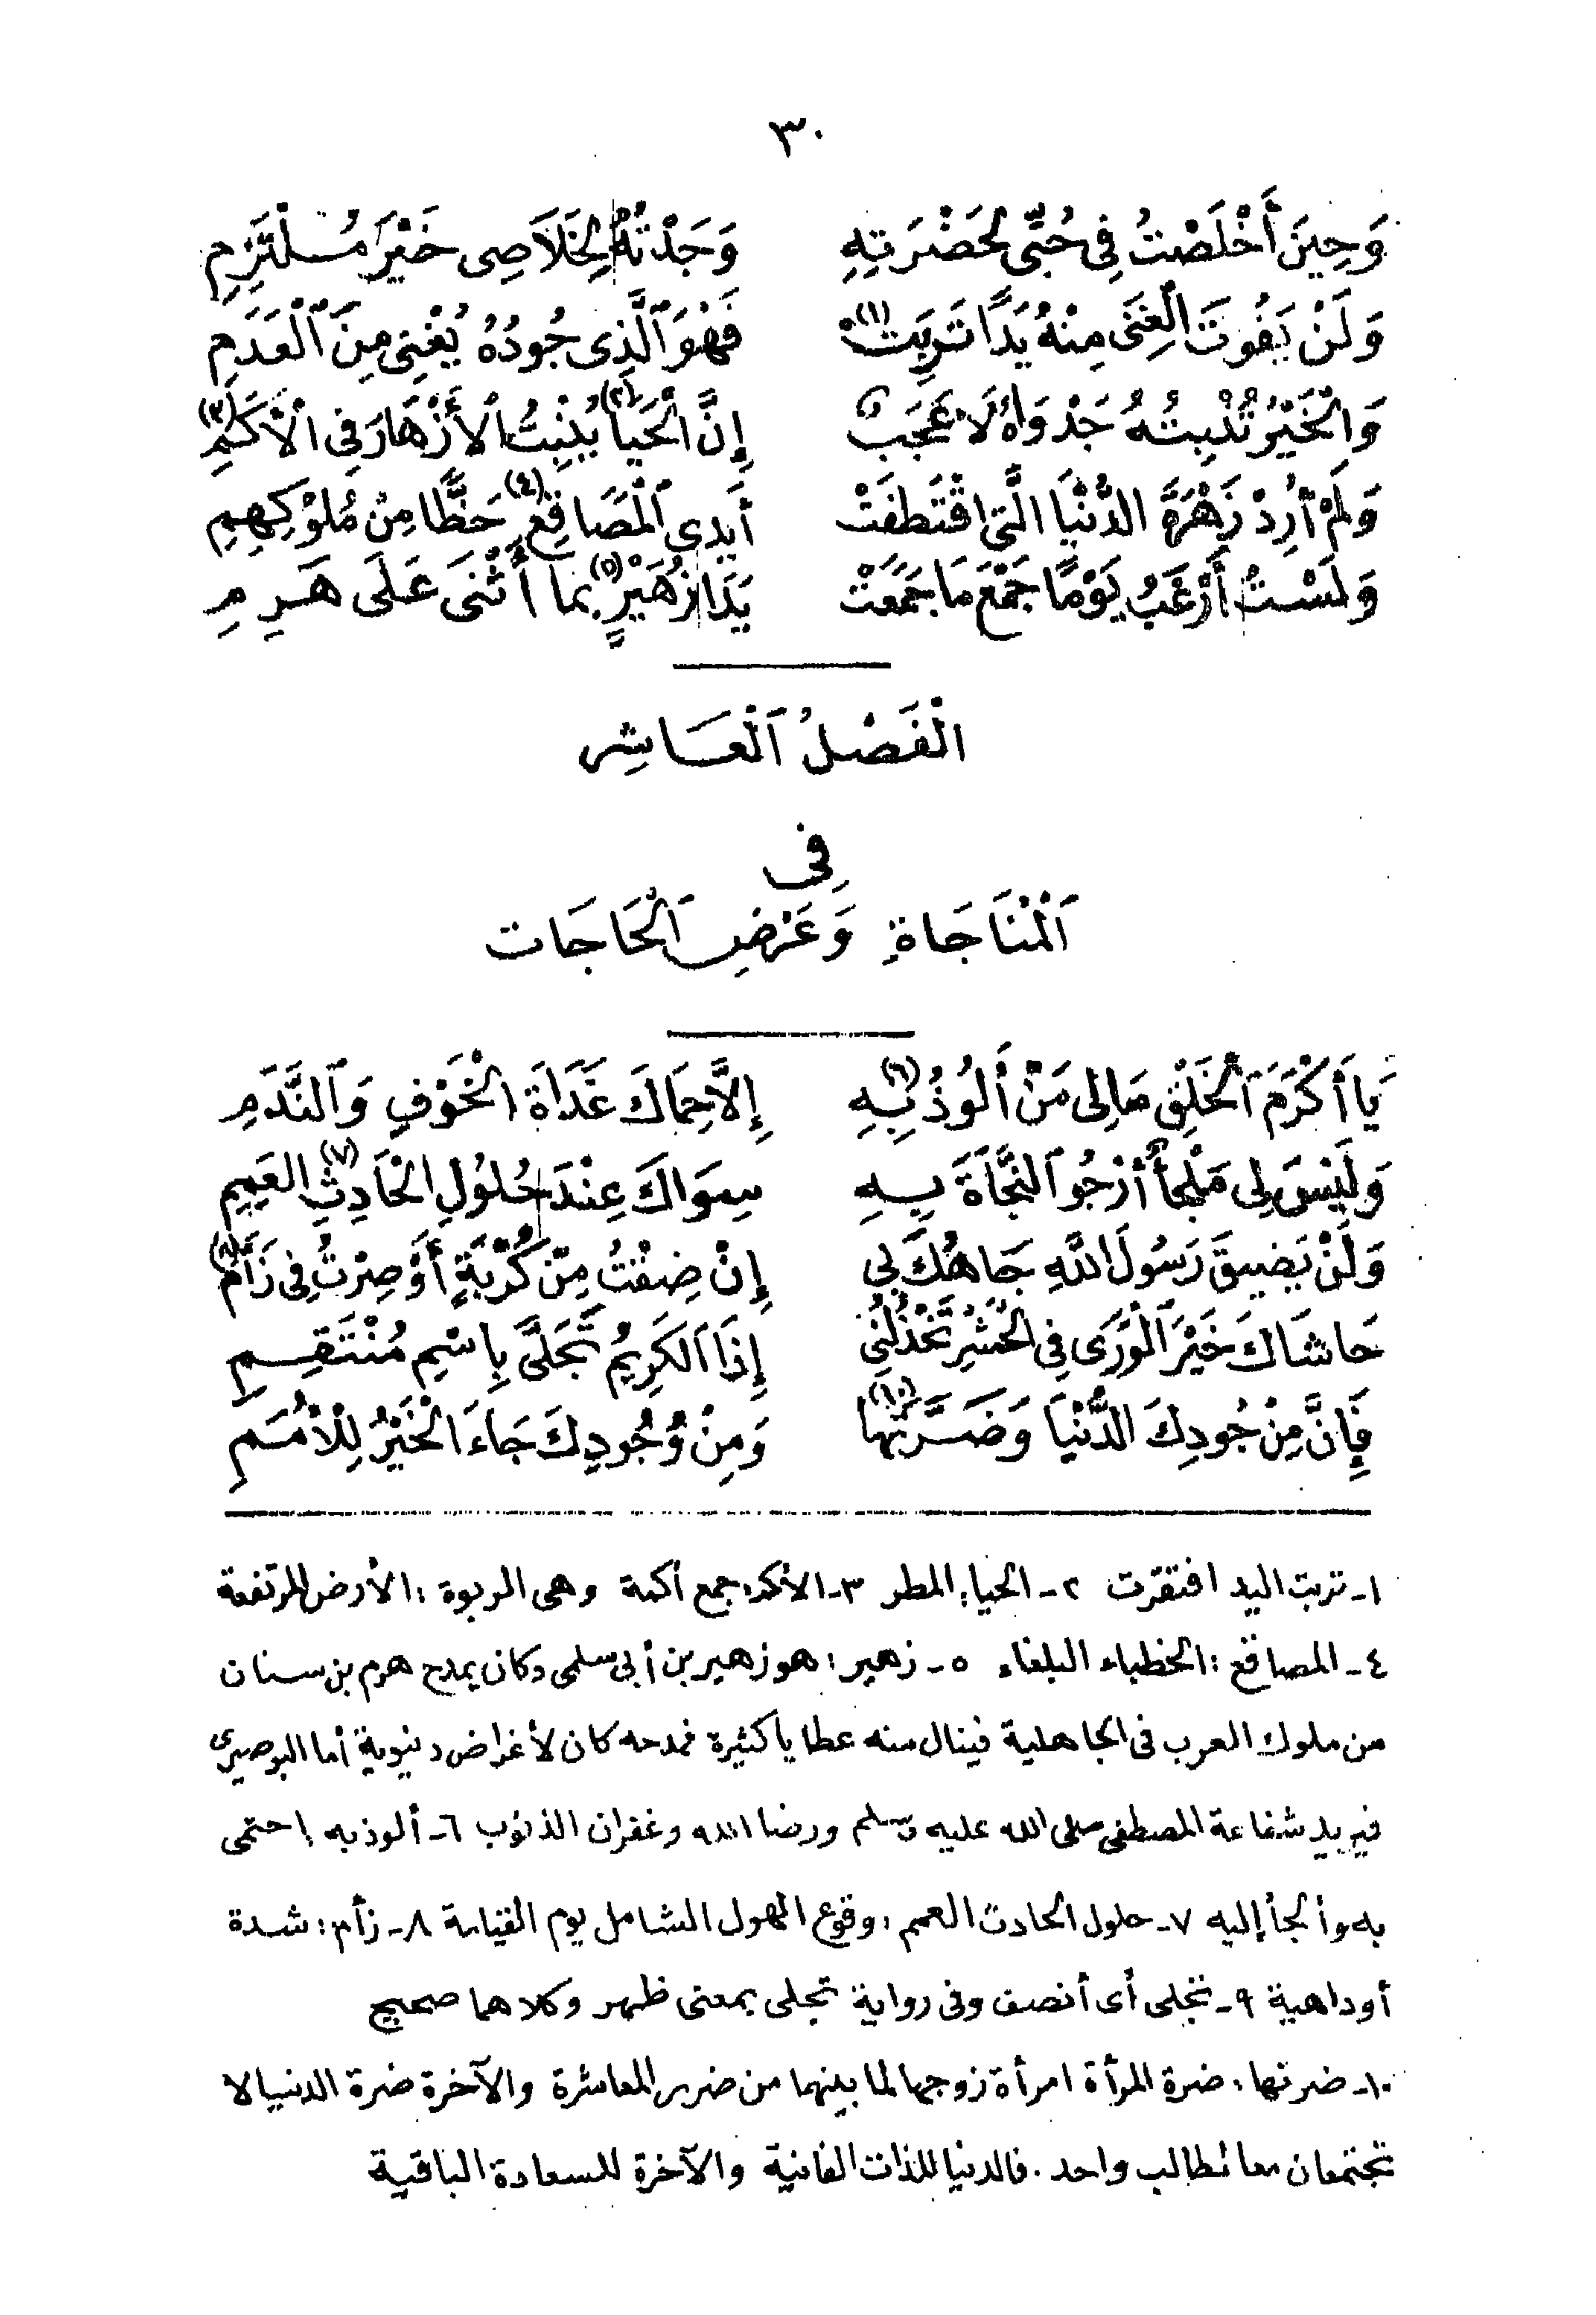 ٣٠
وَحِينَ أَخْلَصْتُ فِى حُبِّى لِحَضْرَتِهِ وَجَدْتُهُ لِخَلَاصِى خَيْرَ مُلْتَزِمِ
وَلَنْ يَفُوتَ الْغِنَى مِنْهُ يَدًا تَرِبَتْ (١) فَهْوَ ٱلَّذِى جُودُهُ يُغْنِى مِنَ ٱلْعَدَمِ
وَالْخَيْرُ تُنْبِتُهُ جَدْوَاهُ لَا عَجَبٌ إِنَّ ٱلْحَيَا (٢) يُنْبِتُ ٱلأَزْهَارَ فِى الْأَكَمِ (٣)
وَلَمْ أُرِدْ زَهْرَةَ الدُّنْيَا الَّتِى اقْتَطَفَتْ أَيْدِى ٱلْمَصَاقِعِ (٤) حَظًّا مِنْ مُلُوْكِهِمِ
وَلَسْتُ أَرْغَبُ يَوْمًا جَمْعَ مَا جَمَعَتْ يَدَا زُهَيْرٍ (٥) بِمَا أَثْنَى عَلَى هَرِمِ
الْفَصْلُ ٱلْعَاشِر
فِى
ٱلْمُنَاجَاةِ وَعَرْضِ ٱلْحَاجَات
يَا أَكْرَمَ ٱلْخَلْقِ مَالِى مَنْ أَلُوذُ بِهِ (٦) إِلَّا حِمَاكَ غَدَاةَ الْخَوْفِ وَٱلنَّدَمِ
وَلَيْسَ لِى مَلْجَأٌ أَرْجُو ٱلنَّجَاةَ بِهِ سِوَاكَ عِنْدَ حُلُولِ الْحَادِثِ (٧) الْعَمِمِ
وَلَنْ يَضِيقَ رَسُولَ اللَّهِ جَاهُكَ بِى إِنْ ضِقْتُ مِنْ كُرْبَةٍ أَوْ صِرْتُ فِى زَأَمِ (٨)
حَاشَاكَ خَيْرَ ٱلْوَرَى فِى الْحَشْرِ تَخْذُلُنِى إِذَا ٱلْكَرِيمُ تَجَلَّى بِاسْمِ مُنْتَقِمِ
فَإِنَّ مِنْ جُودِكَ الدُّنْيَا وَضَرَّتَهَا (١٠) وَمِنْ وُجُودِكَ جَاءَ الْخَيْرُ لِلْأُمَمِ
١- تربت اليد افتقرت ٢- الحيا: المطر ٣- الأكم: جمع أكمة وهى الربوة: الأرض المرتفعة
٤- المصاقع: الخطباء البلغاء ٥- زهير: هو زهير بن أبى سلمى وكان يمدح هرم بن سنان
من ملوك العرب فى الجاهلية فينال منه عطايا كثيرة فمدحه كان لأغراض دنيوية أما البوصيرى
فيريد شفاعة المصطفى صلى الله عليه وسلم ورضا الله وغفران الذنوب ٦- ألوذ به احتمى
به وألجأ إليه ٧- حلول الحادث العمم: وقوع الهول الشامل يوم القيامة ٨- زأم: شدة
أو داهية ٩- تحلى أى أتصف وفى رواية تجلى بمعنى ظهر وكلاهما صحيح
١٠- ضرتها: ضرة المرأة امرأة زوجها لما بينهما من ضرر المعاشرة والآخرة ضرة الدنيا لا
تجتمعان معا لطالب واحد. فالدنيا للذات الفانية والآخرة للسعادة الباقية